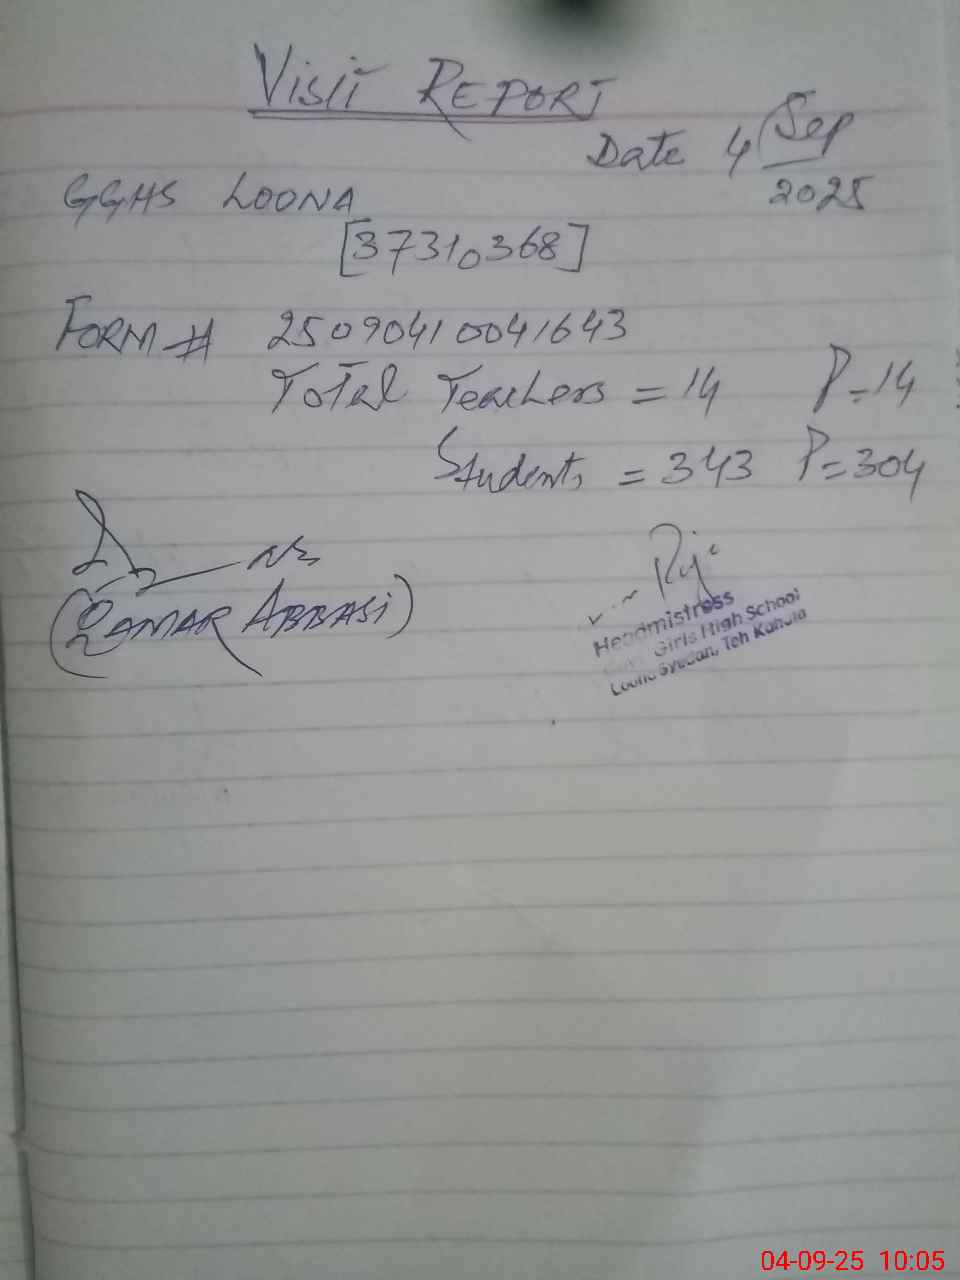 VISIT REPORT
Date 4/Sep
2025
GGHS LOONA
[37310368]
FORM # 25090410041643
Total Teachers = 14 P=14
Students = 343 P=304
(QAMAR ABBASI)
Headmistress
Girls High School
Loona Syedan, Teh Kahuta
04-09-25 10:05